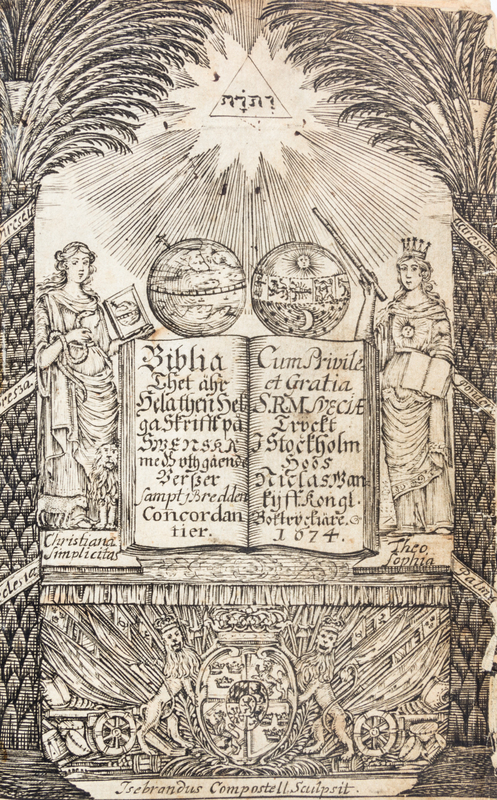 Biblia
Thet ähr
Hela then Hel
ga Skrifft på
SWENSKA
med vthgående
Verßer
sampt Bredden
Concordan
tier.
Cum Privile
et Gratia
S.R.M SVECIÆ
Tryckt
I Stockholm
Hoos
Niclas Wan
kijff Kongl.
Boktryckiare.
1674.
Christiana
Simplicitas
Theo
Sophia
Isebrandus Compostell Sculpsit.